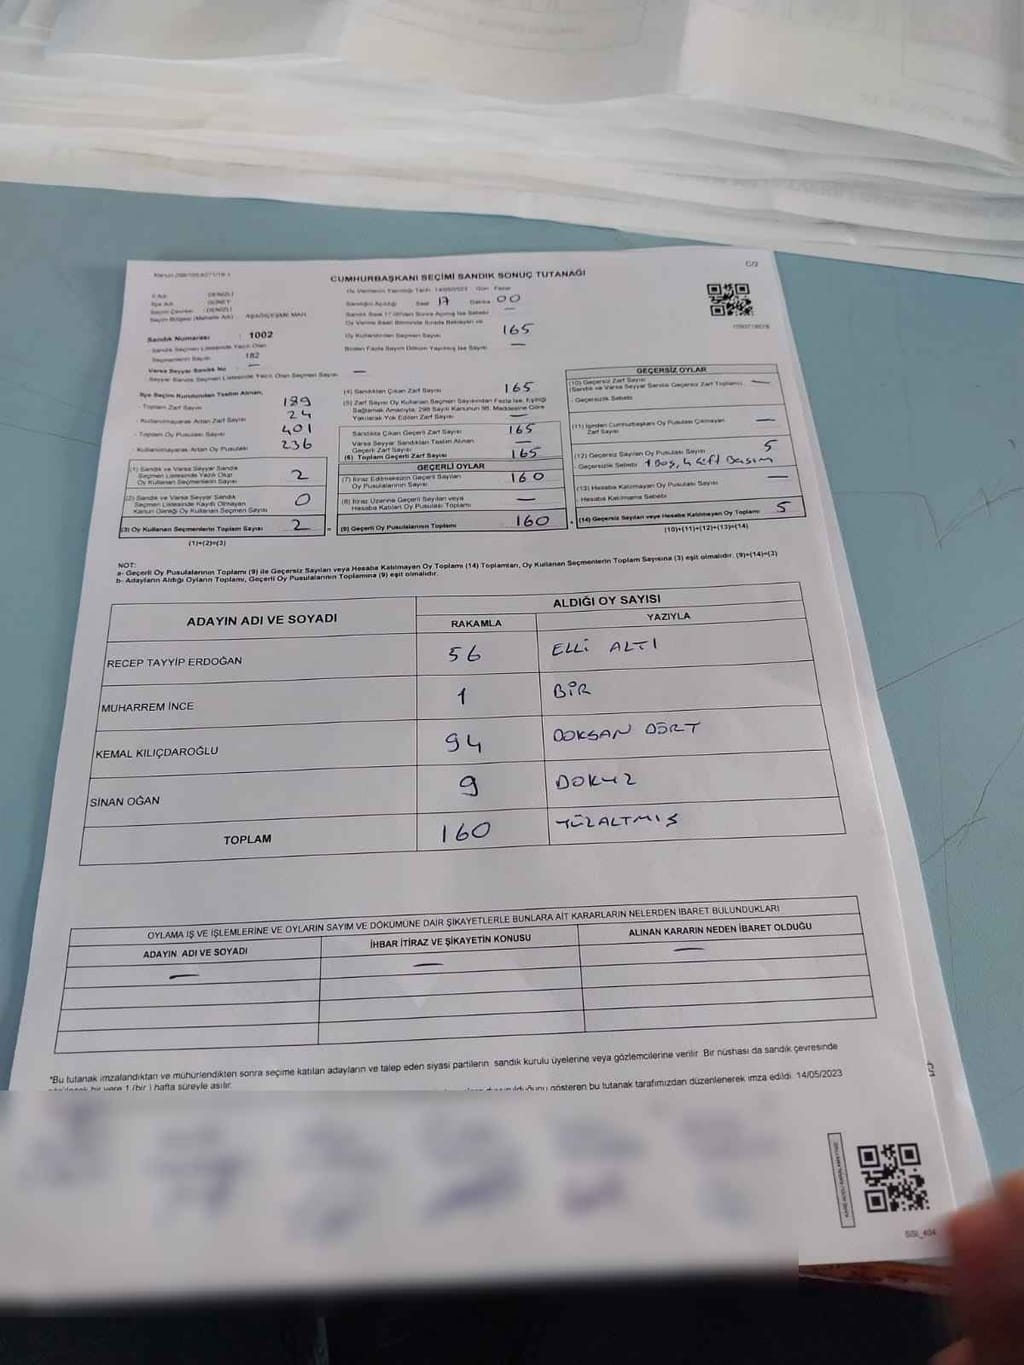 C/2
CUMHURBAŞKANI SEÇİMİ SANDIK SONUÇ TUTANAĞI
İl Adı : DENİZLİ
İlçe Adı : GÜNEY
Seçim Çevresi : DENİZLİ
Seçim Bölgesi (Mahalle Adı) : AŞAĞIÇEŞME MAH.
Sandık Numarası : 1002
Sandık Seçmen Listesinde Yazılı Olan
Seçmenlerin Sayısı : 182
Varsa Seyyar Sandık No —
Seyyar Sandık Seçmen Listesinde Yazılı Olan Seçmen Sayısı —
Oy Vermenin Yapıldığı Tarih 14/05/2023 Gün Pazar
Sandığın Açıldığı Saat 17 Dakika 00
Sandık Saat 17.00'den Sonra Açılmış İse Sebebi —
Oy Verme Saati Bitiminde Sırada Bekleyen ve
Oy Kullandırılan Seçmen Sayısı 165
Birden Fazla Sayım Döküm Yapılmış İse Sayısı —
İlçe Seçim Kurulundan Teslim Alınan,
- Toplam Zarf Sayısı 189
- Kullanılmayarak Artan Zarf Sayısı 24
- Toplam Oy Pusulası Sayısı 401
- Kullanılmayarak Artan Oy Pusulası 236
(1) Sandık ve Varsa Seyyar Sandık
Seçmen Listesinde Yazılı Olup
Oy Kullanan Seçmenlerin Sayısı 2
(2) Sandık ve Varsa Seyyar Sandık
Seçmen Listesinde Kayıtlı Olmayan
Kanun Gereği Oy Kullanan Seçmen Sayısı 0
(3) Oy Kullanan Seçmenlerin Toplam Sayısı 2
(1)+(2)=(3)
(4) Sandıktan Çıkan Zarf Sayısı 165
(5) Zarf Sayısı Oy Kullanan Seçmen Sayısından Fazla İse, Eşitliği
Sağlamak Amacıyla, 298 Sayılı Kanunun 98. Maddesine Göre
Yakılarak Yok Edilen Zarf Sayısı —
Sandıkta Çıkan Geçerli Zarf Sayısı 165
Varsa Seyyar Sandıktan Teslim Alınan
Geçerli Zarf Sayısı —
(6) Toplam Geçerli Zarf Sayısı 165
GEÇERLİ OYLAR
(7) İtiraz Edilmeksizin Geçerli Sayılan
Oy Pusulalarının Sayısı 160
(8) İtiraz Üzerine Geçerli Sayılan veya
Hesaba Katılan Oy Pusulası Toplamı —
= (9) Geçerli Oy Pusulalarının Toplamı 160
GEÇERSİZ OYLAR
(10) Geçersiz Zarf Sayısı
(Sandık ve Varsa Seyyar Sandık Geçersiz Zarf Toplamı) —
- Geçersizlik Sebebi
(11) İçinden Cumhurbaşkanı Oy Pusulası Çıkmayan
Zarf Sayısı —
(12) Geçersiz Sayılan Oy Pusulası Sayısı 5
- Geçersizlik Sebebi 1 Boş, 4 Çift Basım
(13) Hesaba Katılmayan Oy Pusulası Sayısı —
Hesaba Katılmama Sebebi
+ (14) Geçersiz Sayılan veya Hesaba Katılmayan Oy Toplamı 5
(10)+(11)+(12)+(13)=(14)
NOT:
a- Geçerli Oy Pusulalarının Toplamı (9) ile Geçersiz Sayılan veya Hesaba Katılmayan Oy Toplamı (14) Toplamları, Oy Kullanan Seçmenlerin Toplam Sayısına (3) eşit olmalıdır. (9)+(14)=(3)
b- Adayların Aldığı Oyların Toplamı, Geçerli Oy Pusulalarının Toplamına (9) eşit olmalıdır.
ADAYIN ADI VE SOYADI
ALDIĞI OY SAYISI
RAKAMLA YAZIYLA
RECEP TAYYİP ERDOĞAN 56 ELLİ ALTI
MUHARREM İNCE 1 BİR
KEMAL KILIÇDAROĞLU 94 DOKSAN DÖRT
SİNAN OĞAN 9 DOKUZ
TOPLAM 160 YÜZALTMIŞ
OYLAMA İŞ VE İŞLEMLERİNE VE OYLARIN SAYIM VE DÖKÜMÜNE DAİR ŞİKAYETLERLE BUNLARA AİT KARARLARIN NELERDEN İBARET BULUNDUKLARI
ADAYIN ADI VE SOYADI İHBAR İTİRAZ VE ŞİKAYETİN KONUSU ALINAN KARARIN NEDEN İBARET OLDUĞU
— — —
*Bu tutanak imzalandıktan ve mühürlendikten sonra seçime katılan adayların ve talep eden siyasi partilerin sandık kurulu üyelerine veya gözlemcilerine verilir. Bir nüshası da sandık çevresinde
bir yere 1 (bir) hafta süreyle asılır.
gösteren bu tutanak tarafımızdan düzenlenerek imza edildi. 14/05/2023